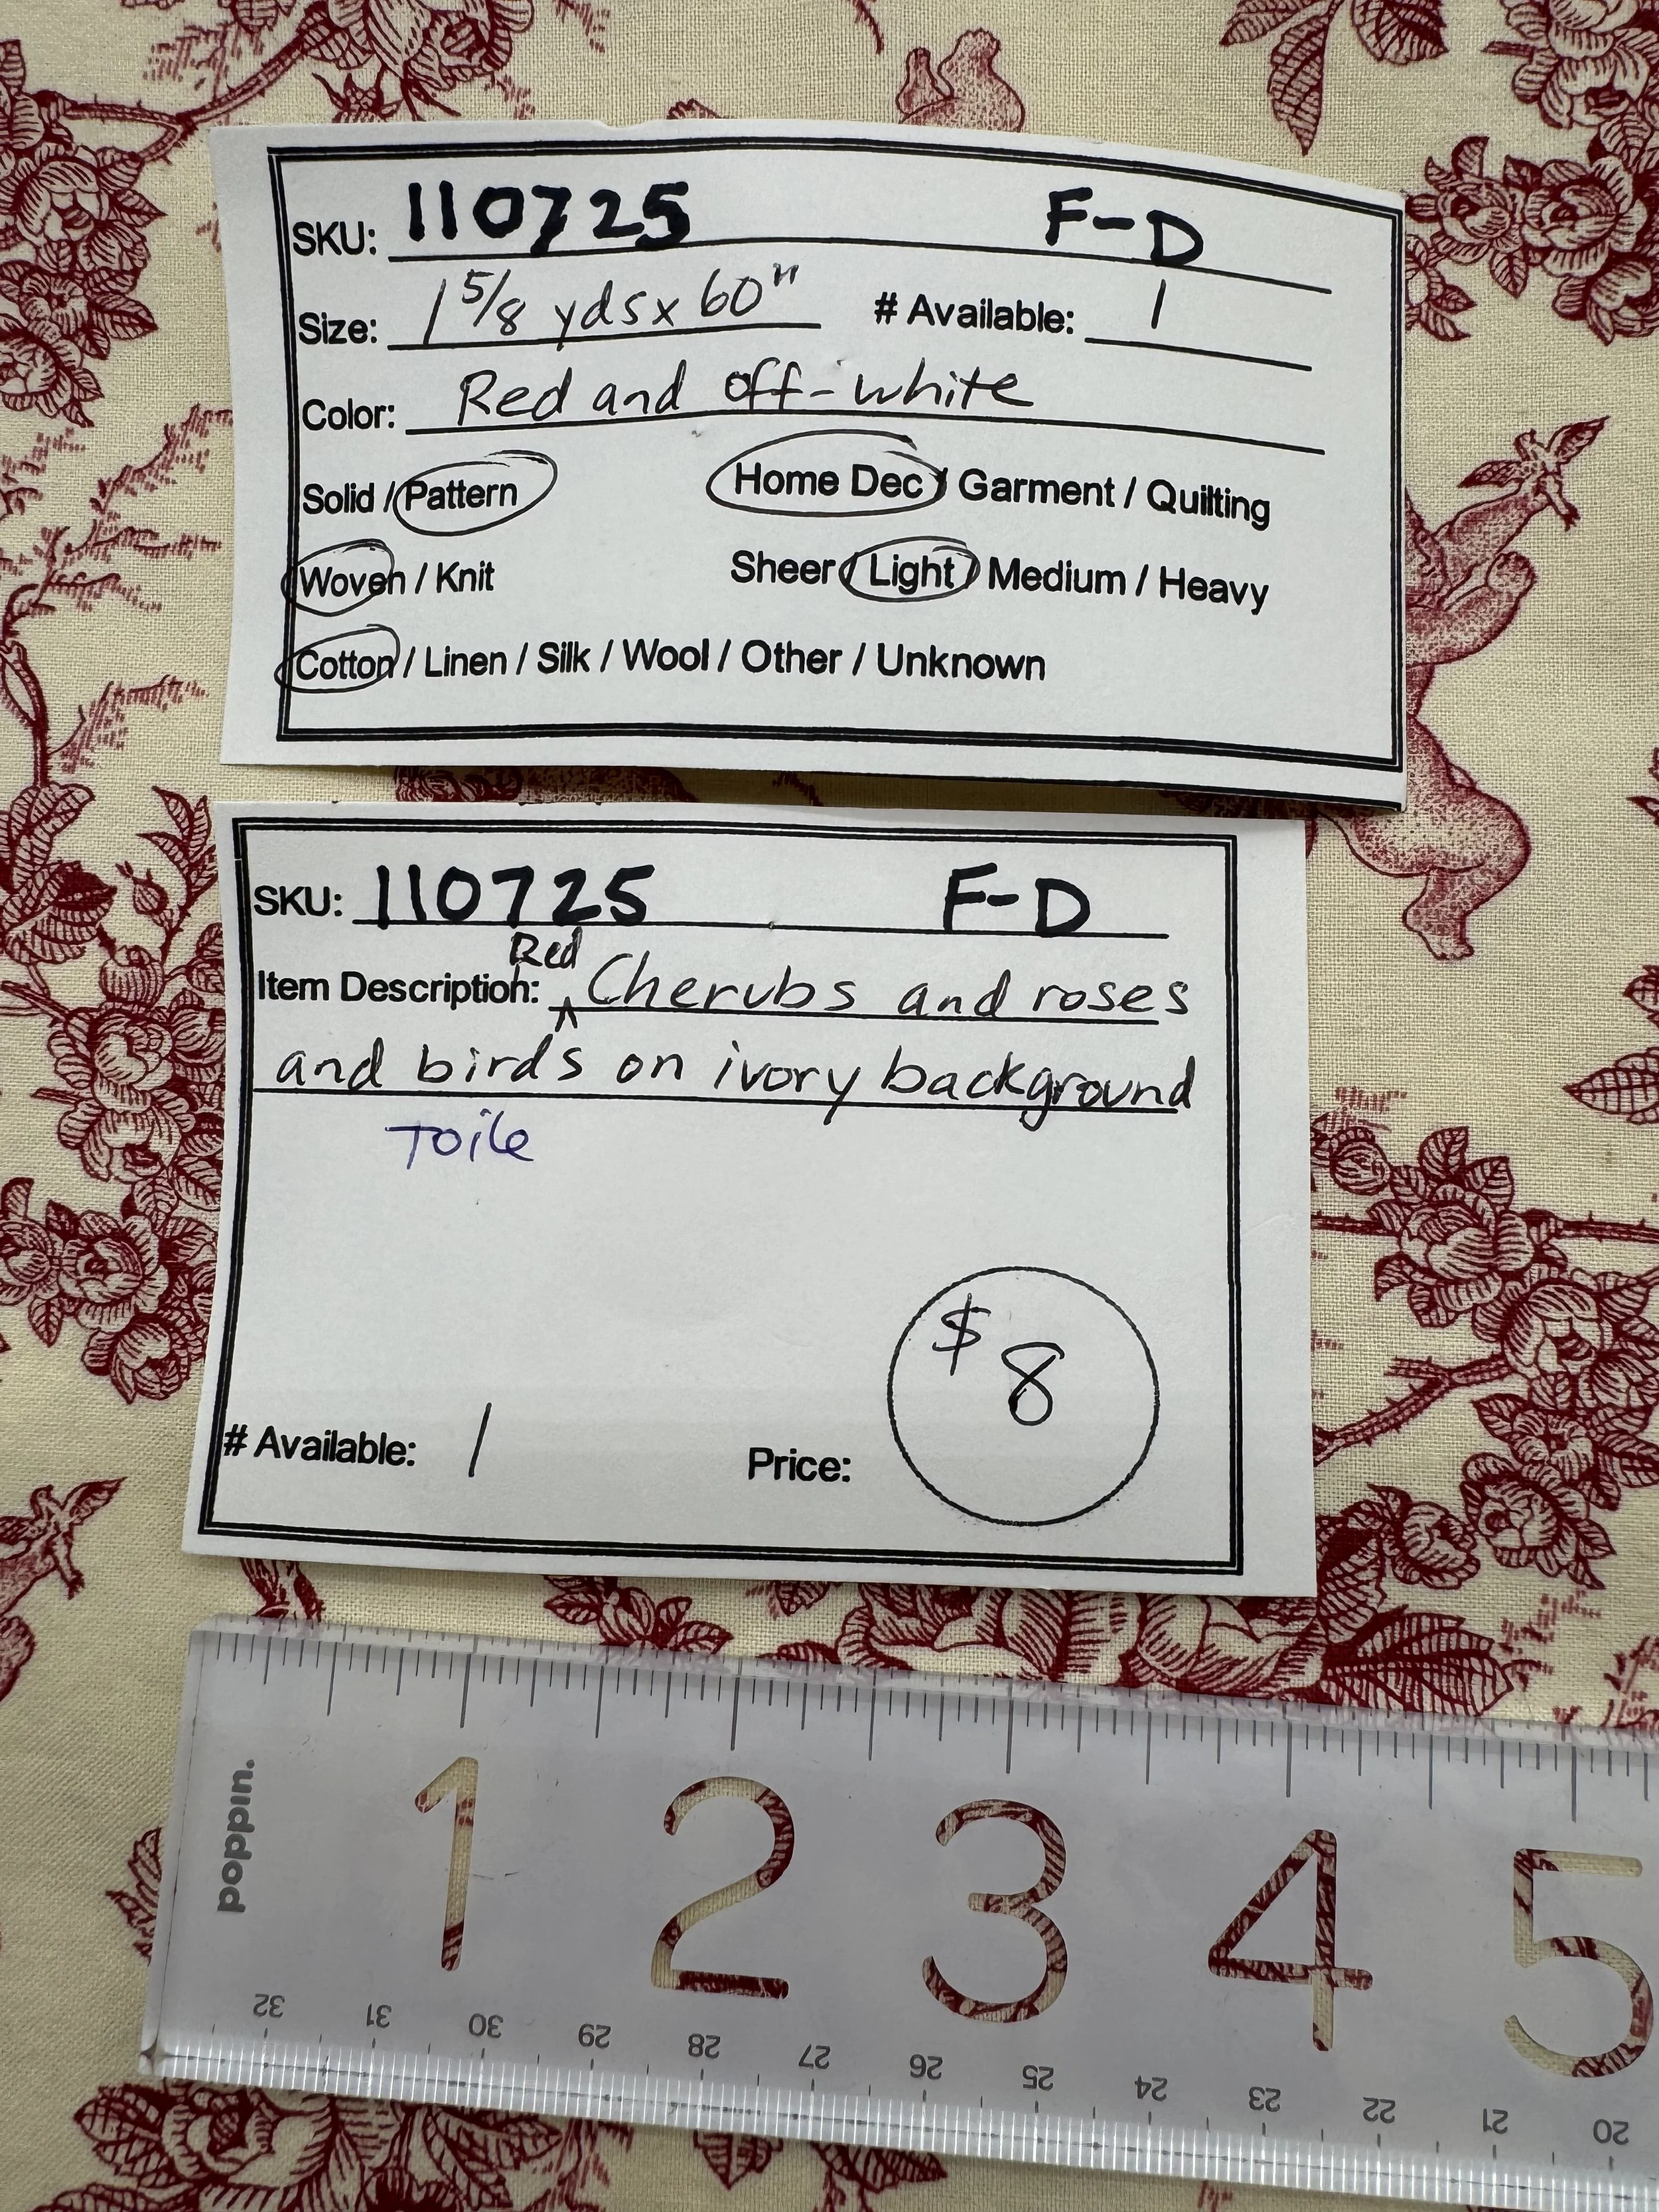 SKU: 110725 F-D
Size: 1 5/8 yds x 60" # Available: 1
Color: Red and off-white
Solid / Pattern Home Dec / Garment / Quilting
Woven / Knit Sheer / Light / Medium / Heavy
Cotton / Linen / Silk / Wool / Other / Unknown
SKU: 110725 F-D
Red
Item Description: ^ Cherubs and roses
and birds on ivory background
Toile
$8
# Available: 1 Price:
poppin.
1 2 3 4 5
32 31 30 29 28 27 26 25 24 23 22 21 20